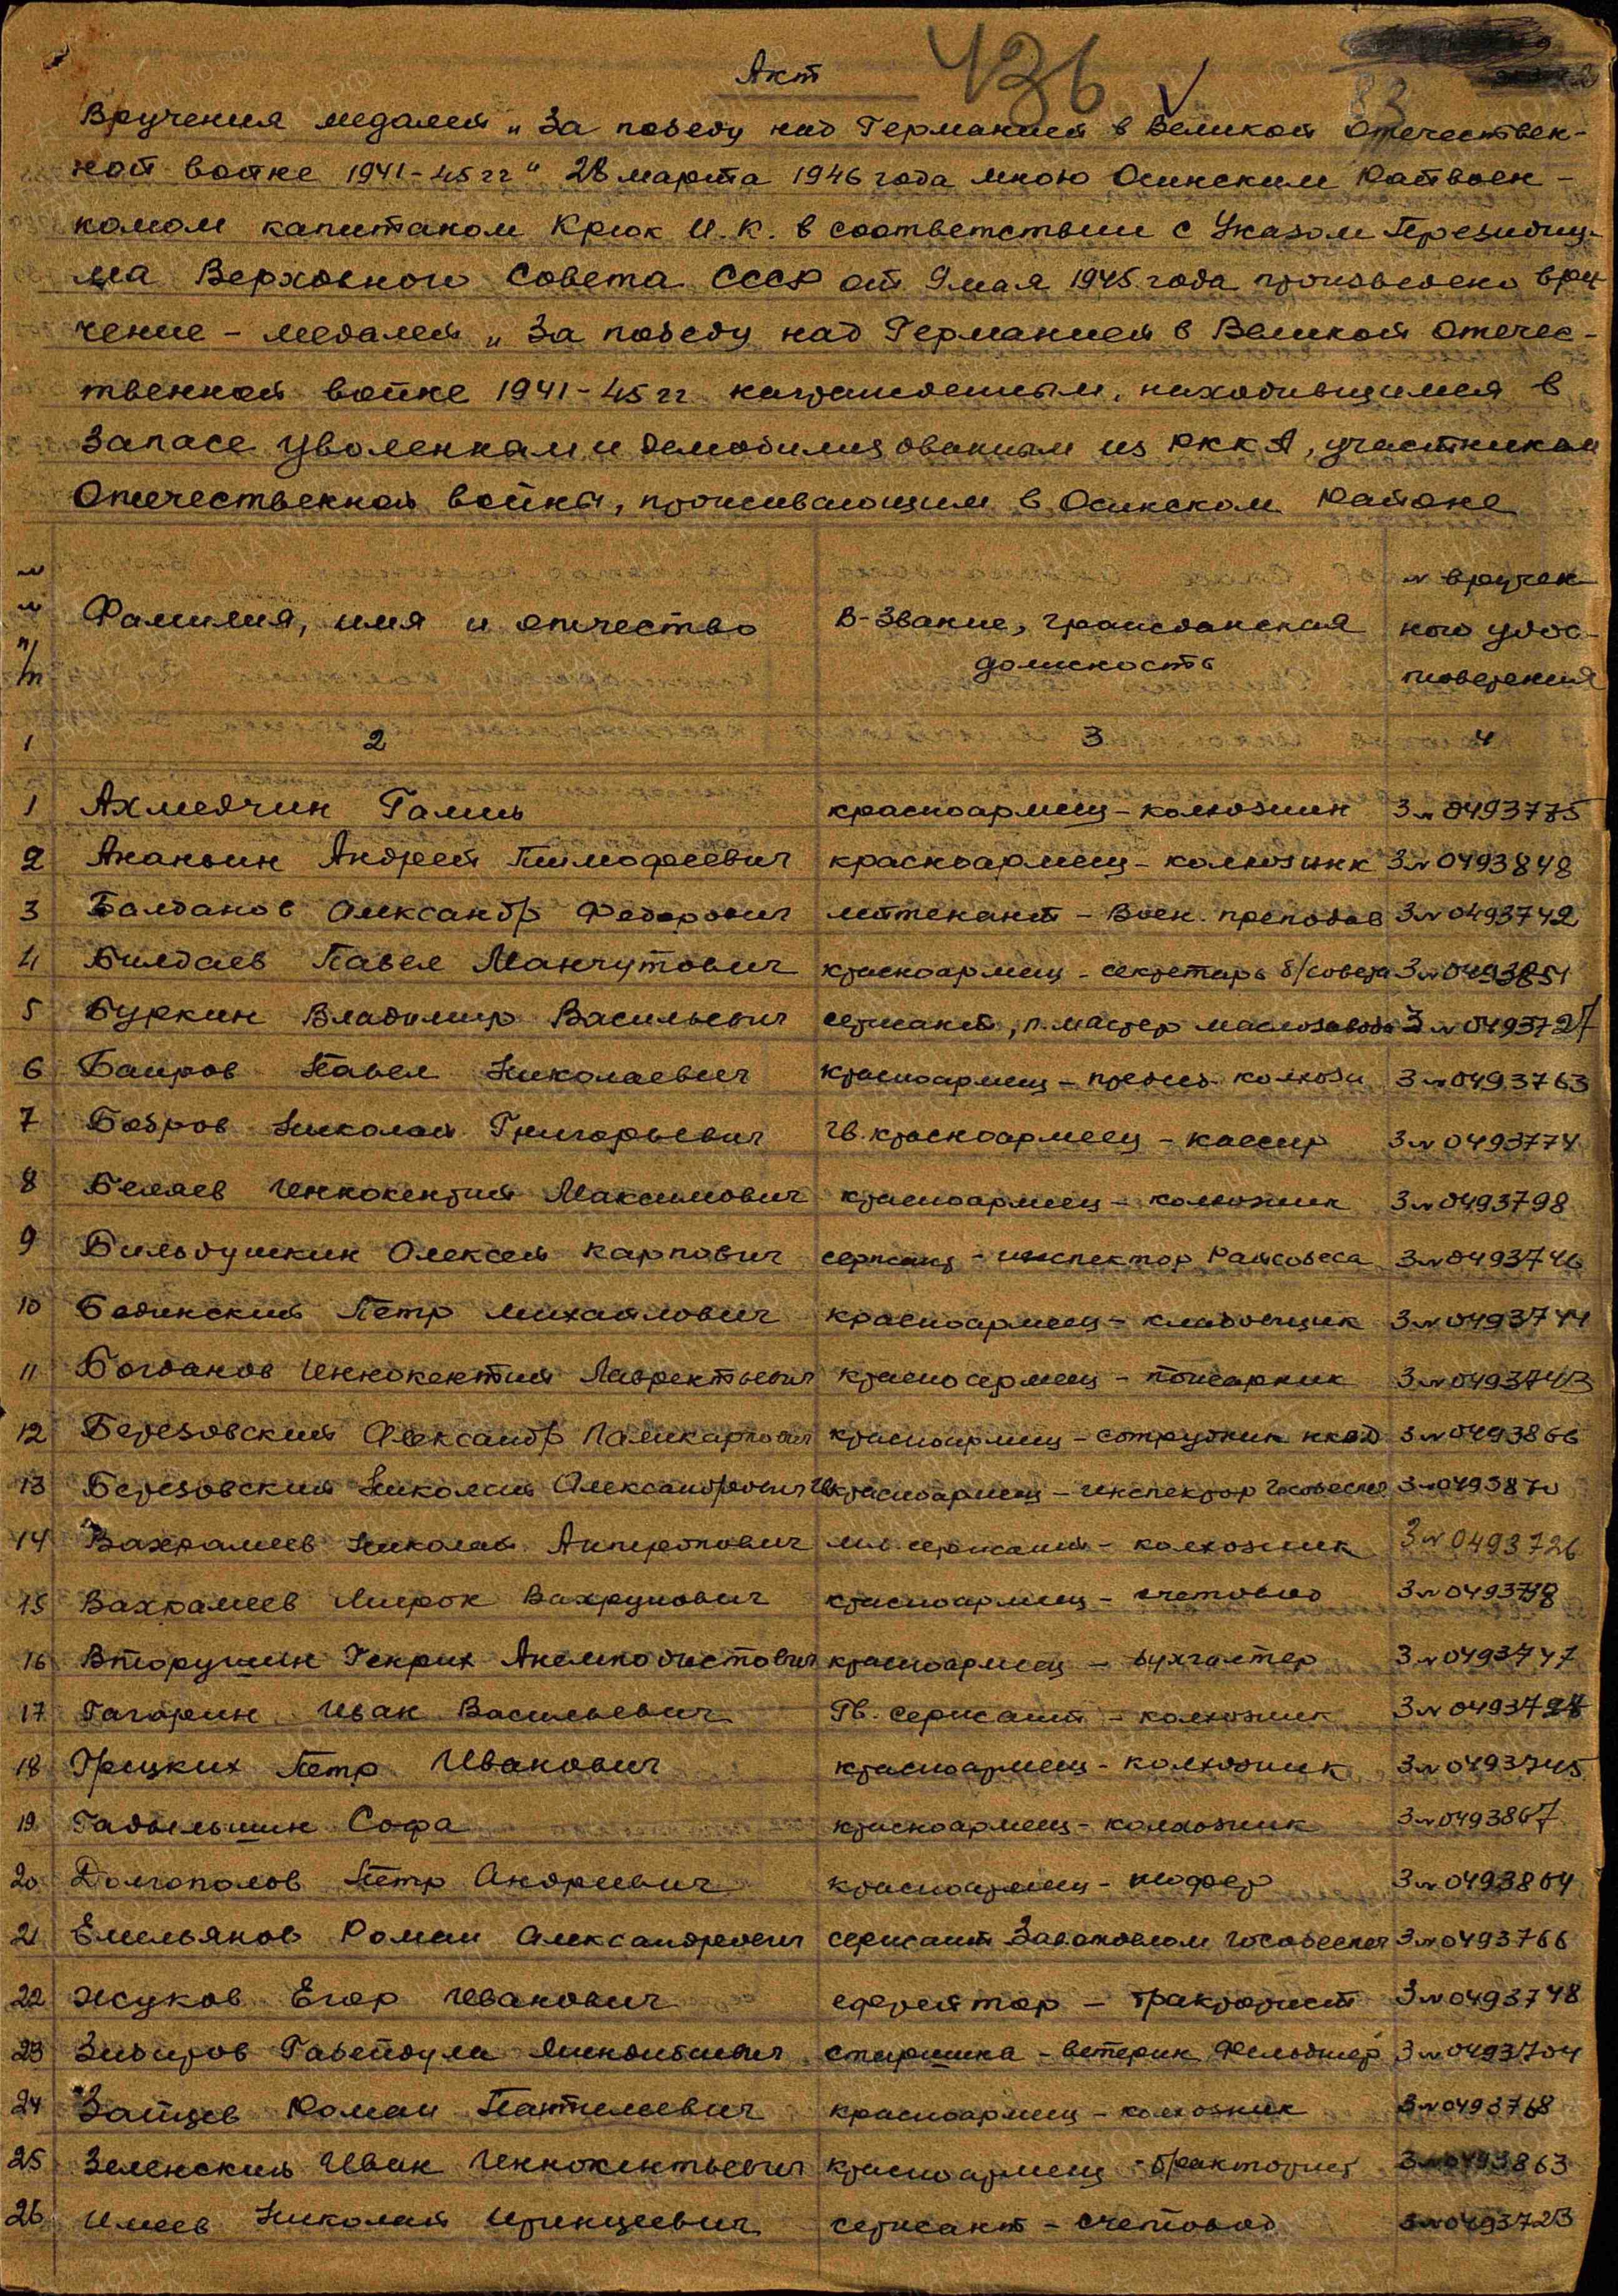 436
83
Акт
Вручения медалей „За победу над Германией в Великой Отечествен-
ной войне 1941-45 гг“ 28 марта 1946 года мною Осинским Райвоен-
комом капитаном Крюк И.К. в соответствии с Указом Президиу-
ма Верховного Совета СССР от 9 мая 1945 года произведено вру-
чение - медалей „За победу над Германией в Великой Отечес-
твенной войне 1941-45 гг награжденным, находившимся в
запасе уволенным и демобилизованным из РККА, участникам
Отечественной войны, проживающим в Осинском Районе
№ № п/п Фамилия, имя и отчество В-Звание, гражданская должность № вручен-ного удос-товерения
1 2 3 4
1 Ахмедчин Галиь красноармец - колхозник З № 0493775
2 Ананьин Андрей Тимофеевич красноармец - колхозник З № 0493848
3 Балданов Александр Федорович лейтенант - Воен. преподав З № 0493742
4 Билдаев Павел Манчутович красноармец - секретарь с/совета З № 0493851
5 Буркин Владимир Васильевич сержант, п. мастер маслозавода З № 0493727
6 Баиров Павел Николаевич красноармец - председ. колхоза З № 0493763
7 Бобров Николай Григорьевич гв. красноармеец - кассир З № 0493774
8 Беляев Иннокентий Максимович красноармеец - колхозник З № 0493798
9 Бильдушкин Олексей Карпович сержант - инспектор Райсобеса З № 0493746
10 Бадинский Петр Михайлович красноармеец - кладовщик З № 0493744
11 Богданов Иннокентий Лаврентьевич красноармеец - пожарник З № 0493743
12 Березовский Александр Паликарпович красноармец - сотрудник нквд З № 0493866
13 Березовский Николай Александрович Гв красноармеец - инспектор З № 0493870
14 Вахрамеев Николай Антропович мл. сержант - колхозник З № 0493726
15 Вахрамеев Мирон Вахрунович красноармец - счетовод З № 0493798
16 Вторушин Генрих Анемподистович красноармеец - бухгалтер З № 0493747
17 Гагарин Иван Васильевич Гв. сержант - колхозник З № 0493797
18 Грицких Петр Иванович красноармеец - колхозник З № 0493745
19 Гадыльшин Софа красноармеец - колхозник З № 0493867
20 Долгополов Петр Андреевич красноармец - шофер З № 0493864
21 Емельянов Роман Александрович сержант З № 0493766
22 Жуков Егор Иванович ефрейтор - тракторист З № 0493748
23 Зибиров Габейдула старшина - ветерин. Фельдшер З № 0493704
24 Зайцев Роман Пантелеевич красноармец - колхозник З № 0493768
25 Зеленский Иван Иннокентьевич красноармец - тракторист З № 0493863
26 Имеев Николай Иринцеевич сержант - счетовод З № 0493723